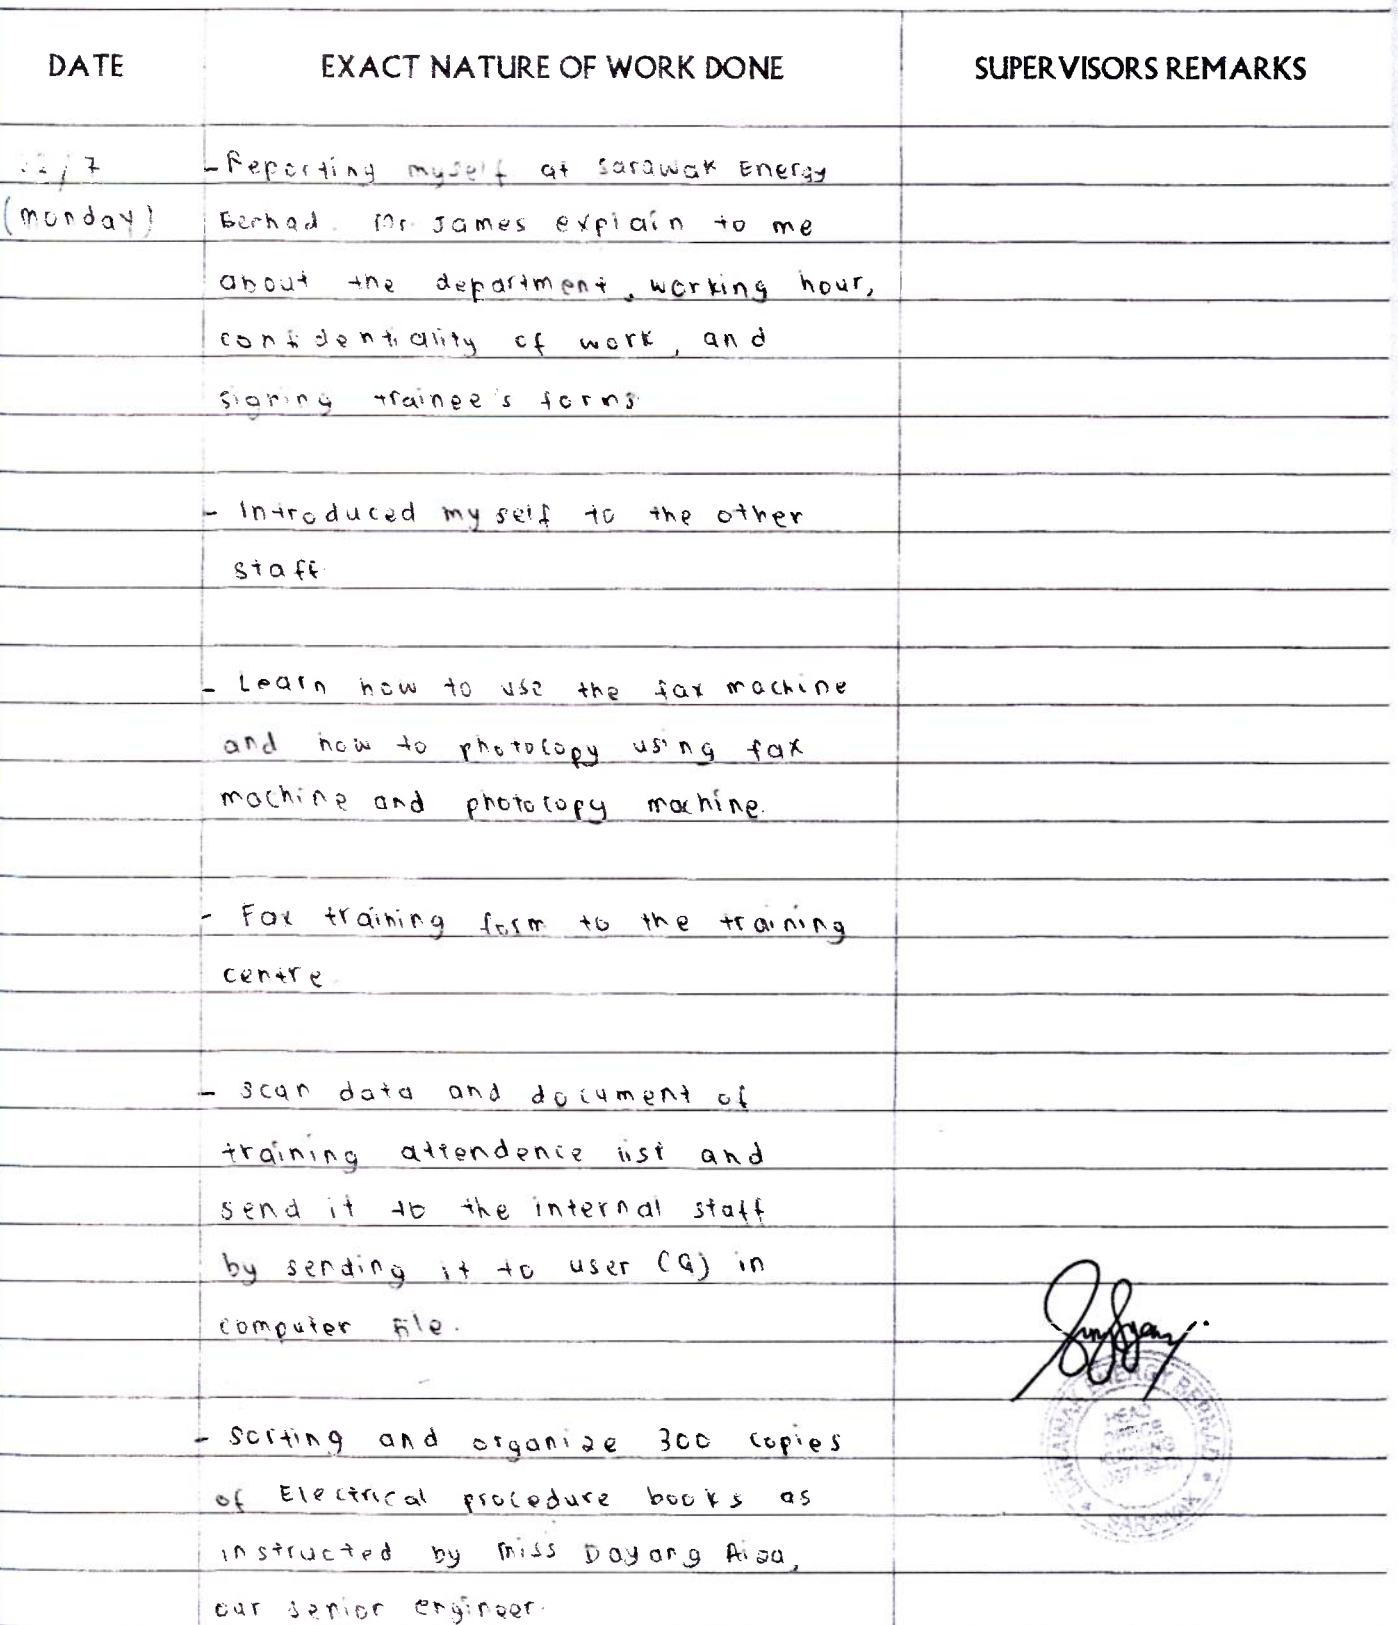 DATE EXACT NATURE OF WORK DONE SUPERVISORS REMARKS
- Reporting myself at Sarawak Energy
(monday) Berhad. Mr. James explain to me
about the department, working hour,
confidentiality of work, and
signing trainee's forms
- Introduced my self to the other
staff.
- Learn how to use the fax machine
and how to photocopy using fax
machine and photocopy machine.
- Fax training form to the training
centre.
- Scan data and document of
training attendence list and
send it to the internal staff
by sending it to user (G) in
computer file.
- Sorting and organize 300 copies
of Electrical procedure books as
instructed by Miss Dayang Aiza,
our senior engineer.
SARAWAK ENERGY BERHAD
SARAWAK